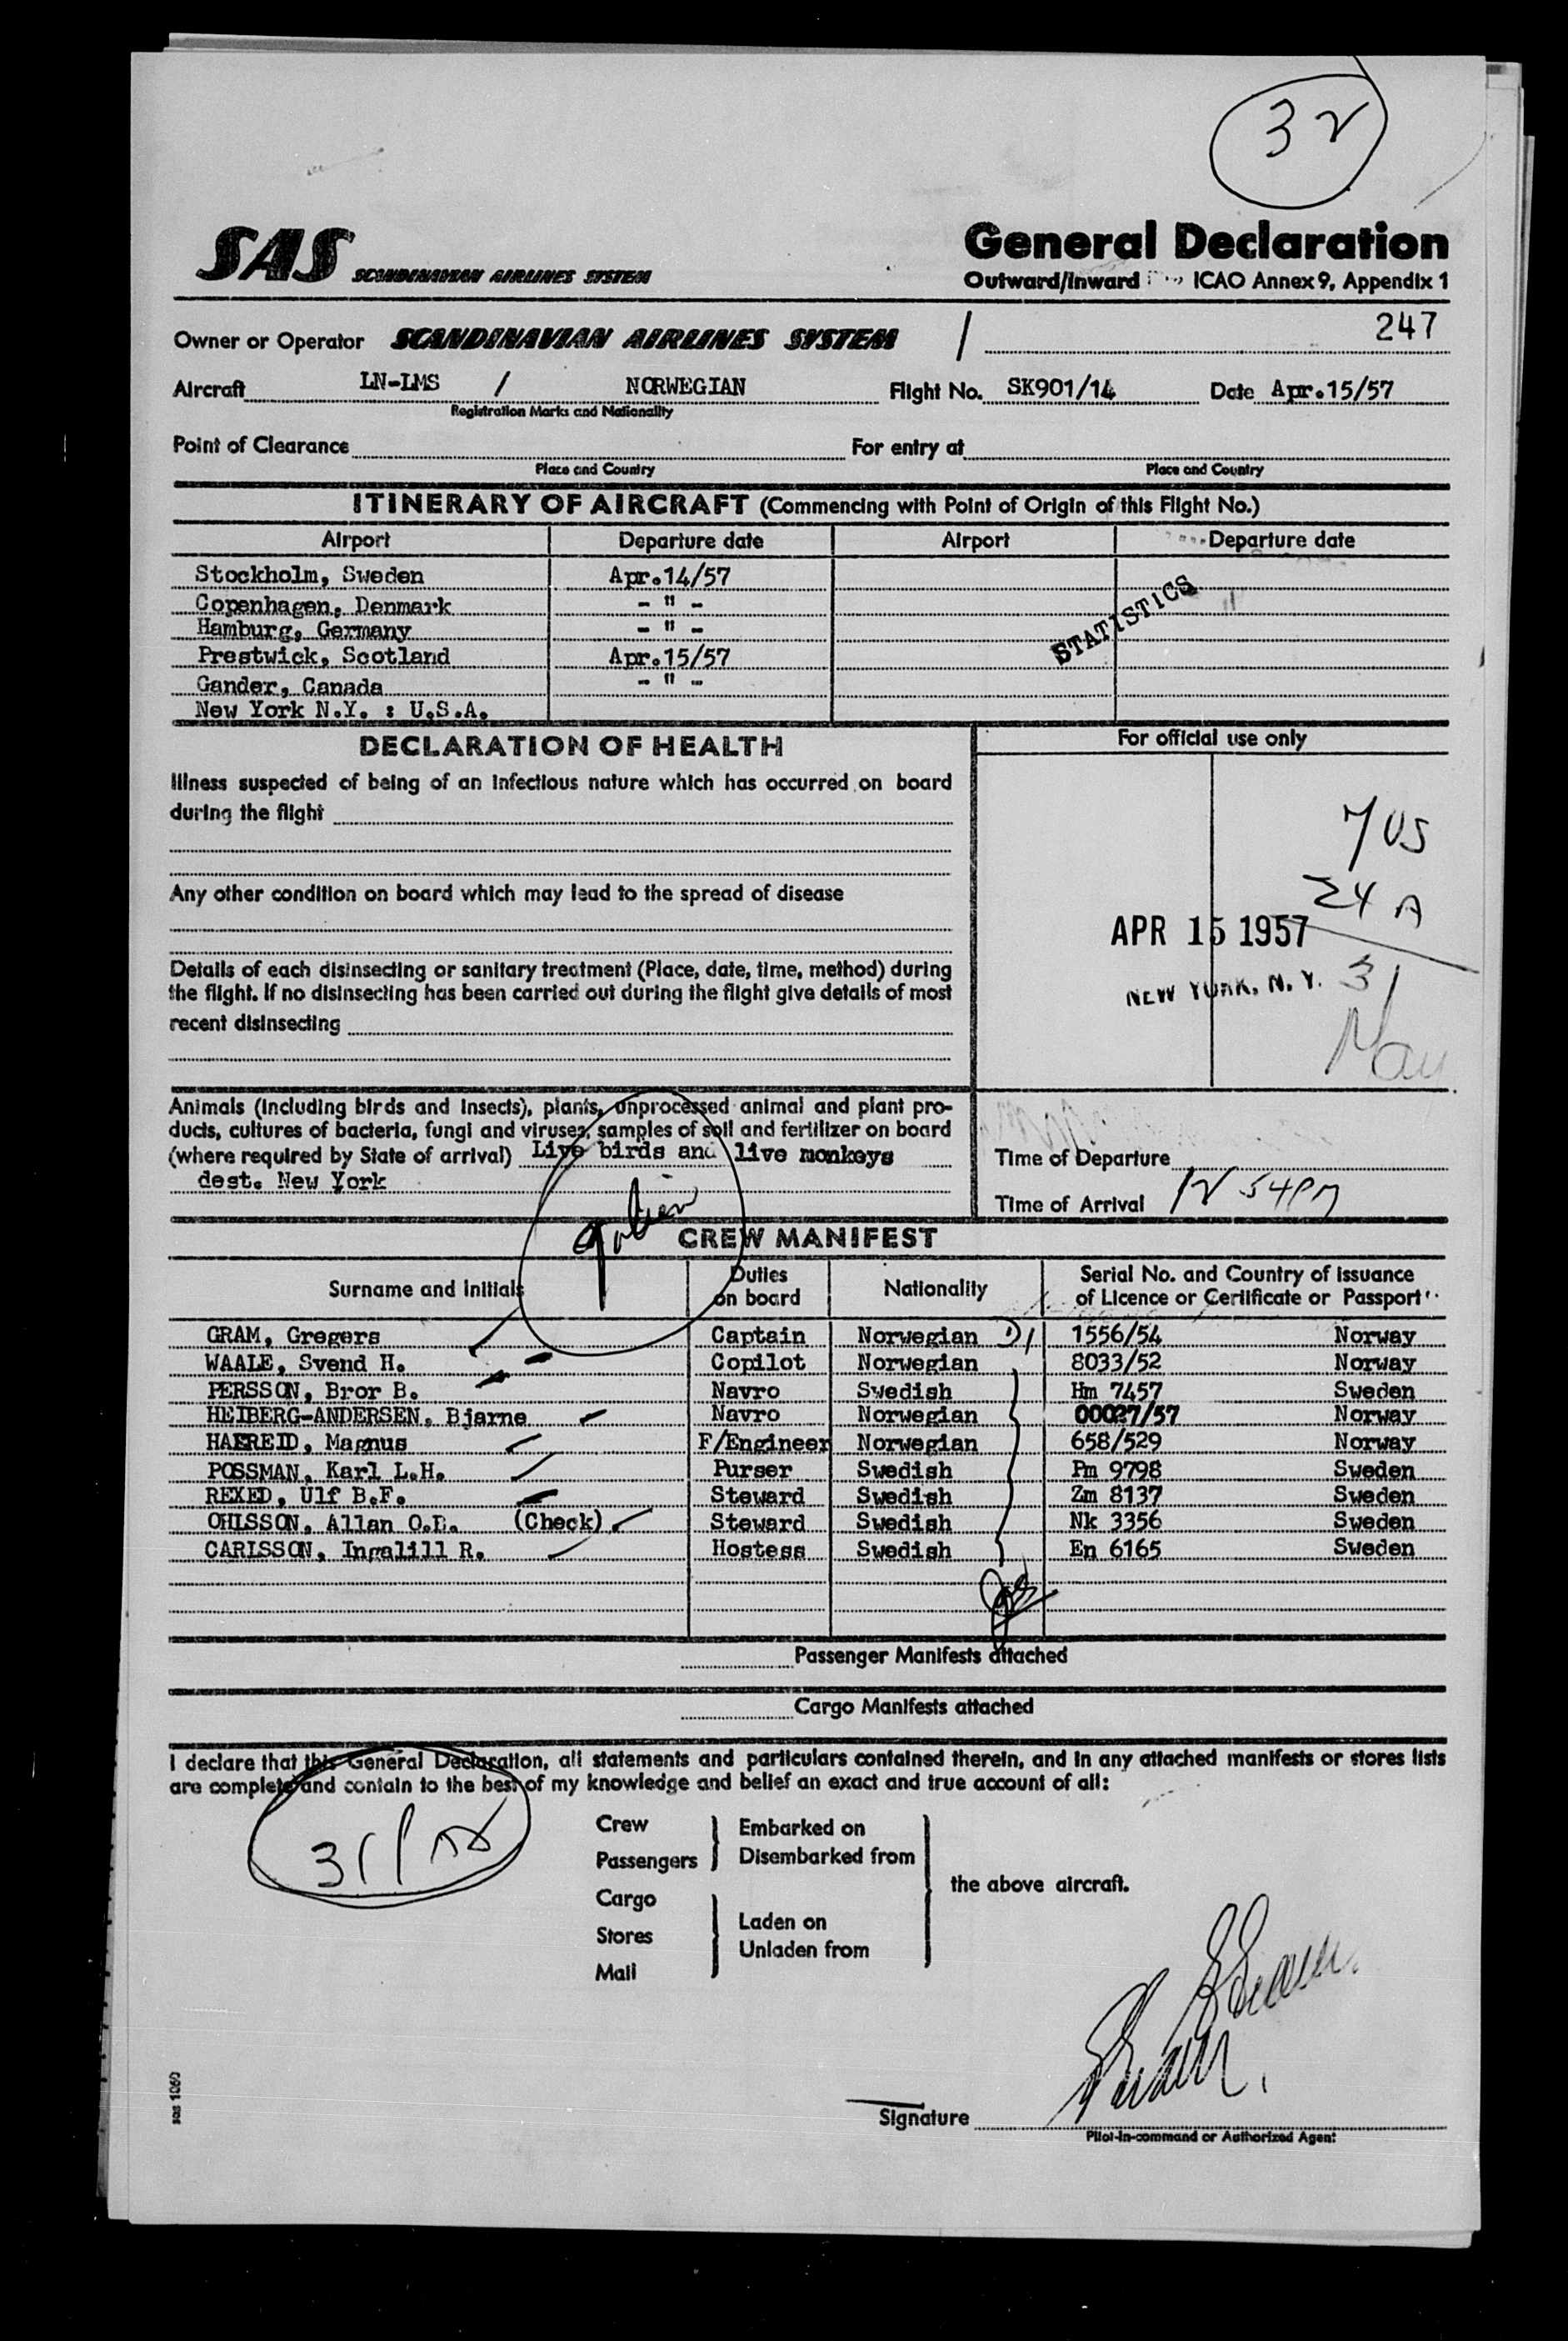 32
SAS SCANDINAVIAN AIRLINES SYSTEM
General Declaration
Outward/Inward ICAO Annex 9, Appendix 1
247
Owner or Operator SCANDINAVIAN AIRLINES SYSTEM /
Aircraft LN-LMS / NORWEGIAN Flight No. SK901/14 Date Apr.15/57
Registration Marks and Nationality
Point of Clearance For entry at
Place and Country Place and Country
ITINERARY OF AIRCRAFT (Commencing with Point of Origin of this Flight No.)
Airport Departure date Airport Departure date
Stockholm, Sweden Apr.14/57
Copenhagen, Denmark - " -
Hamburg, Germany - " -
Prestwick, Scotland Apr.15/57
Gander, Canada - " -
New York N.Y. : U.S.A.
STATISTICS
DECLARATION OF HEALTH
Illness suspected of being of an infectious nature which has occurred on board
during the flight
Any other condition on board which may lead to the spread of disease
Details of each disinsecting or sanitary treatment (Place, date, time, method) during
the flight. If no disinsecting has been carried out during the flight give details of most
recent disinsecting
For official use only
7 US
24 A
31
APR 15 1957
NEW YORK, N. Y.
Animals (including birds and insects), plants, unprocessed animal and plant pro-
ducts, cultures of bacteria, fungi and viruses, samples of soil and fertilizer on board
(where required by State of arrival) Live birds and live monkeys
dest. New York
Time of Departure
Time of Arrival 12 54PM
CREW MANIFEST
Surname and Initials Duties on board Nationality Serial No. and Country of issuance of Licence or Certificate or Passport
GRAM, Gregers Captain Norwegian 1556/54 Norway
WAALE, Svend H. Copilot Norwegian 8033/52 Norway
PERSSON, Bror B. Navro Swedish Hm 7457 Sweden
HEIBERG-ANDERSEN, Bjarne Navro Norwegian 00027/57 Norway
HAEREID, Magnus F/Engineer Norwegian 658/529 Norway
POSSMAN, Karl L.H. Purser Swedish Pm 9798 Sweden
REXED, Ulf B.F. Steward Swedish Zm 8137 Sweden
OHLSSON, Allan O.B. (Check) Steward Swedish Nk 3356 Sweden
CARLSSON, Ingalill R. Hostess Swedish En 6165 Sweden
Passenger Manifests attached
Cargo Manifests attached
I declare that this General Declaration, all statements and particulars contained therein, and in any attached manifests or stores lists
are complete and contain to the best of my knowledge and belief an exact and true account of all:
Crew
Passengers
Embarked on
Disembarked from
Cargo
Stores
Mail
Laden on
Unladen from
the above aircraft.
Signature
Pilot-in-command or Authorized Agent
sas 1060